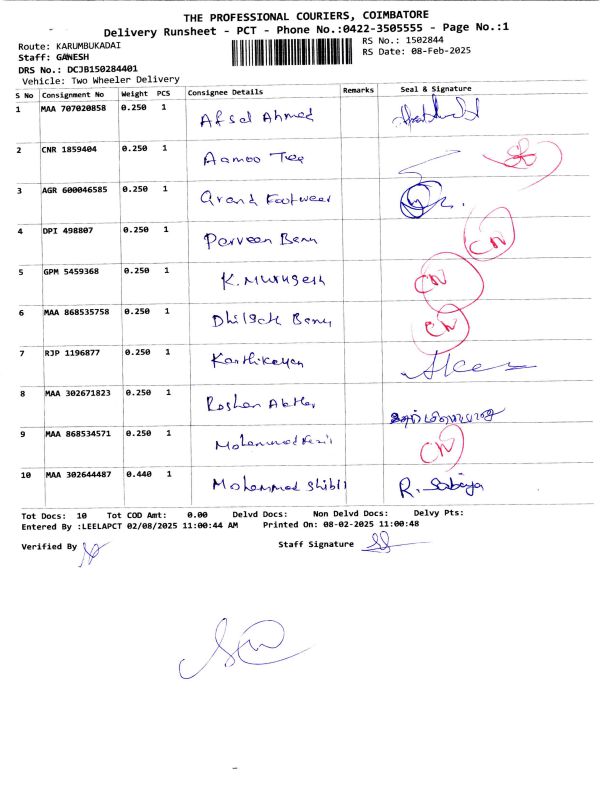 THE PROFESSIONAL COURIERS, COIMBATORE
Delivery Runsheet - PCT - Phone No.:0422-3505555 - Page No.:1
Route: KARUMBUKADAI
RS No.: 1502844
Staff: GANESH
RS Date: 08-Feb-2025
DRS No.: DCJB150284401
Vehicle: Two Wheeler Delivery
S No Consignment No Weight PCS Consignee Details Remarks Seal & Signature
1 MAA 707020858 0.250 1 Afsal Ahmed
2 CNR 1859404 0.250 1 Aamoo Tex
3 AGR 600046585 0.250 1 Grand Footwear
4 DPI 498807 0.250 1 Parveen Banu CN
5 GPM 5459368 0.250 1 K. Murugesh CN
6 MAA 868535758 0.250 1 Dhilsath Banu CN
7 RJP 1196877 0.250 1 Karthikeyan
8 MAA 302671823 0.250 1 Roshan
9 MAA 868534571 0.250 1 Mohammed CN
10 MAA 302644487 0.440 1 Mohammad Shibil R. Sabiya
Tot Docs: 10 Tot COD Amt: 0.00 Delvd Docs: Non Delvd Docs: Delvy Pts:
Entered By :LEELAPCT 02/08/2025 11:00:44 AM Printed On: 08-02-2025 11:00:48
Verified By
Staff Signature